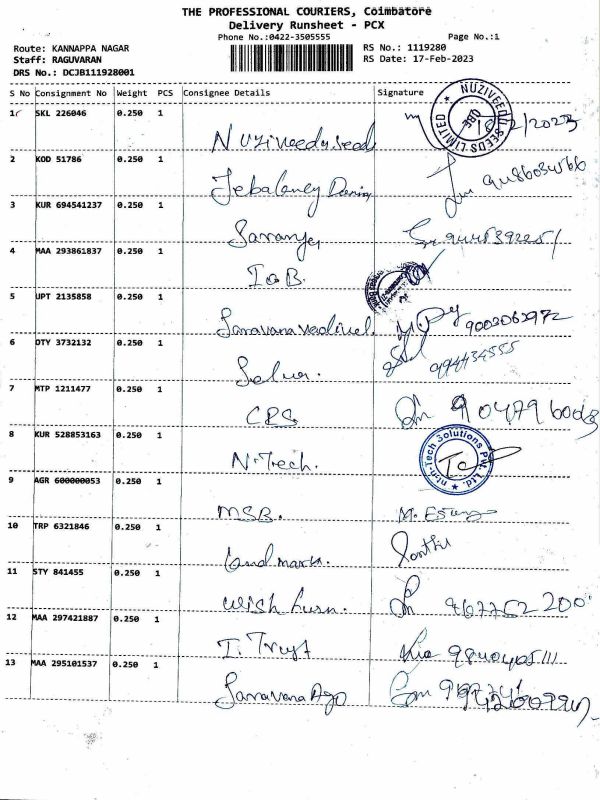 THE PROFESSIONAL COURIERS, Coimbatore
Delivery Runsheet - PCX
Phone No.:0422-3505555
Page No.:1
Route: KANNAPPA NAGAR
RS No.: 1119280
Staff: RAGUVARAN
RS Date: 17-Feb-2023
DRS No.: DCJB111928001
S No Consignment No Weight PCS Consignee Details Signature
1 SKL 226046 0.250 1
NUZIVEEDU SEEDS LIMITED
CBE
Nuziveedu seeds
2 KOD 51786 0.250 1
3 KUR 694541237 0.250 1
4 MAA 293861837 0.250 1
IOB
5 UPT 2135858 0.250 1
Saravana vadivel 9003062972
6 OTY 3732132 0.250 1
Selva.
7 MTP 1211477 0.250 1
CRS
8 KUR 528853163 0.250 1
N-Tech.
ntn-Tech Solutions Pvt. Ltd.
9 AGR 600000053 0.250 1
MSB.
10 TRP 6321846 0.250 1
Landmark.
11 STY 841455 0.250 1
12 MAA 297421887 0.250 1
I. Trust
13 MAA 295101537 0.250 1
Saravana Ago